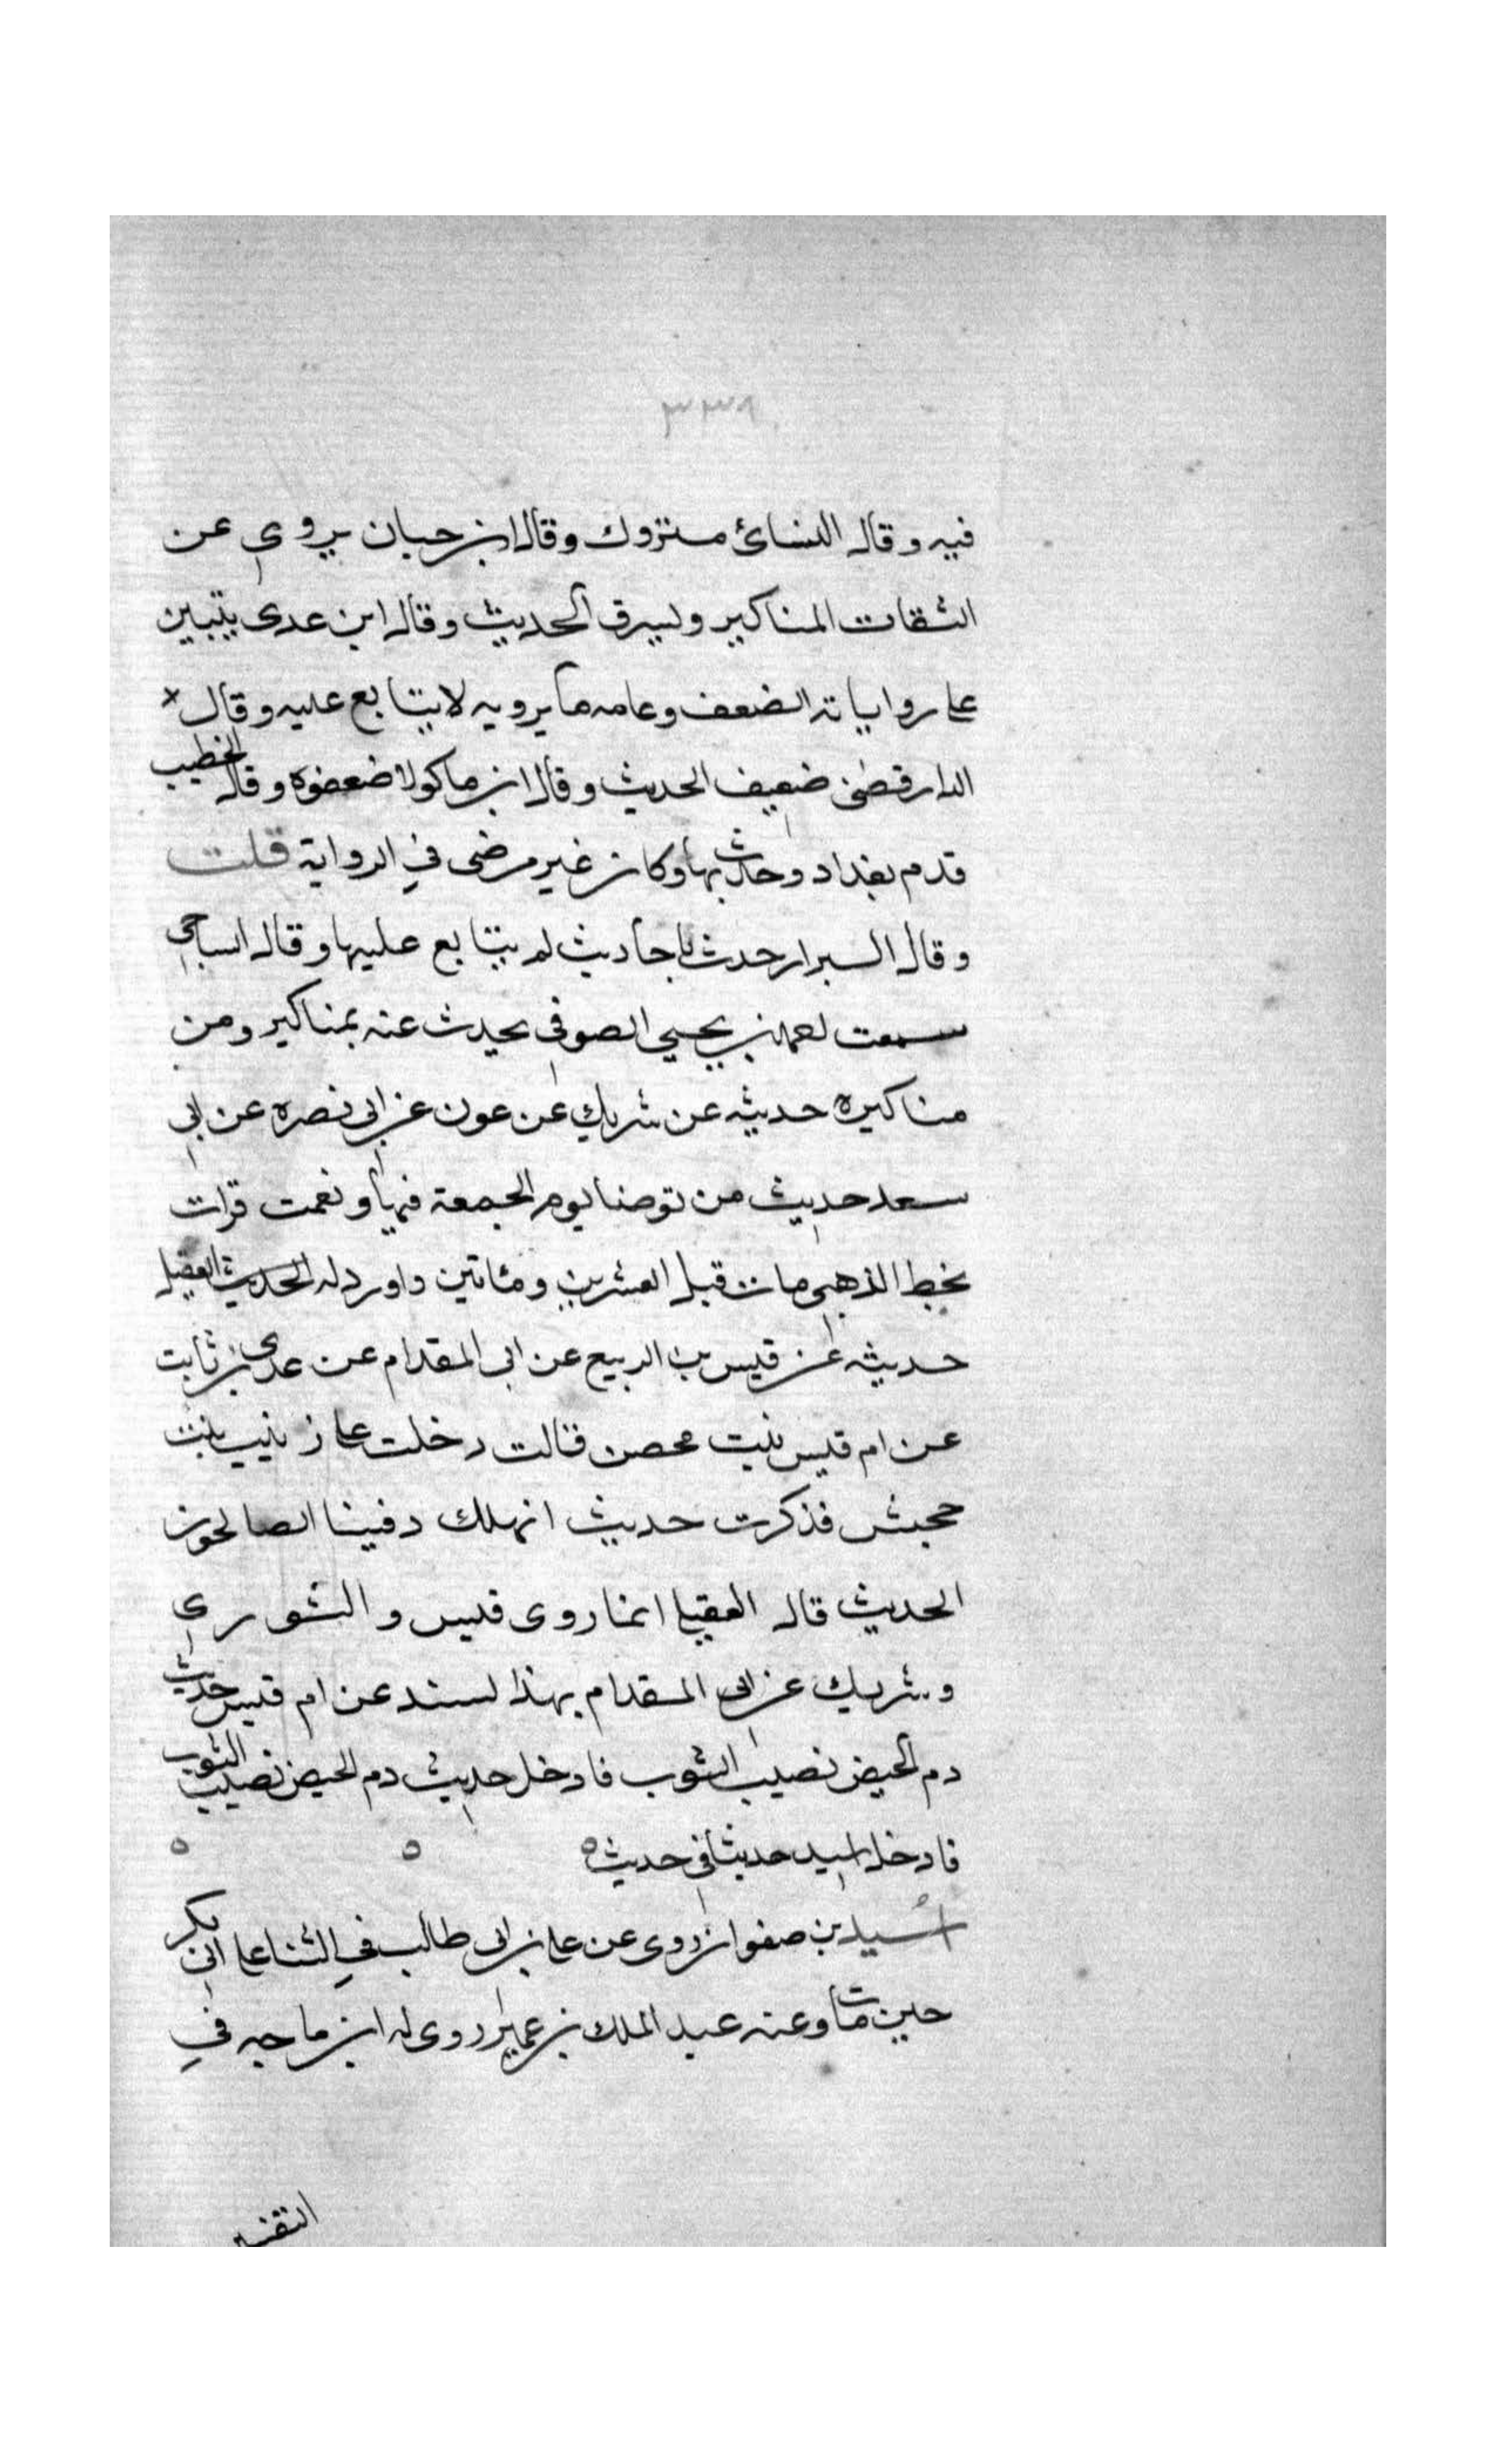 ٣٣٩
فيه وقال النسائي متروك وقال ابن حبان يروي عن
الثقات المناكير ويسرق الحديث وقال ابن عدي يتبين
على رواياته الضعف وعامه ما يرويه لا يتابع عليه وقال
الدارقطني ضعيف الحديث وقال ابن ماكولا ضعفوه وقال الخطيب
قدم بغداد وحدث بها وكان غير مرضي في الرواية قلت
وقال البزار حدث باحاديث لم يتابع عليها وقال الساجي
سمعت احمد بن يحيى الصوفي يحدث عنه بمناكير ومن
مناكيره حديثه عن شريك عن عون عن ابي نصره عن ابي
سعد حديث من توضا يوم الجمعة فبها ونعمت قرات
بخط الذهبي مات قبل العشرين ومئاتين واورد له الحديث العقيلي
حديثه عن قيس بن الربيع عن ابي المقدام عن عدي بن ثابت
عن ام قيس بنت محصن قالت دخلت على زينب بنت
جحش فذكرت حديث انهلك وفينا الصالحون
الحديث قال العقيلي انما روى قيس والثوري
وشريك عن ابي المقدام بهذا لسند عن ام قيس حديث
دم الحيض نصيب الثوب فادخل حديث دم الحيض نصيب الثوب
فادخل اسيد حديثا في حديث ه ه ه
اسيد بن صفوان روى عن علي بن ابي طالب في الثنا على ابي بكر
حين مات وعنه عبد الملك بن عمير روى له ابن ماجه في
التفسير